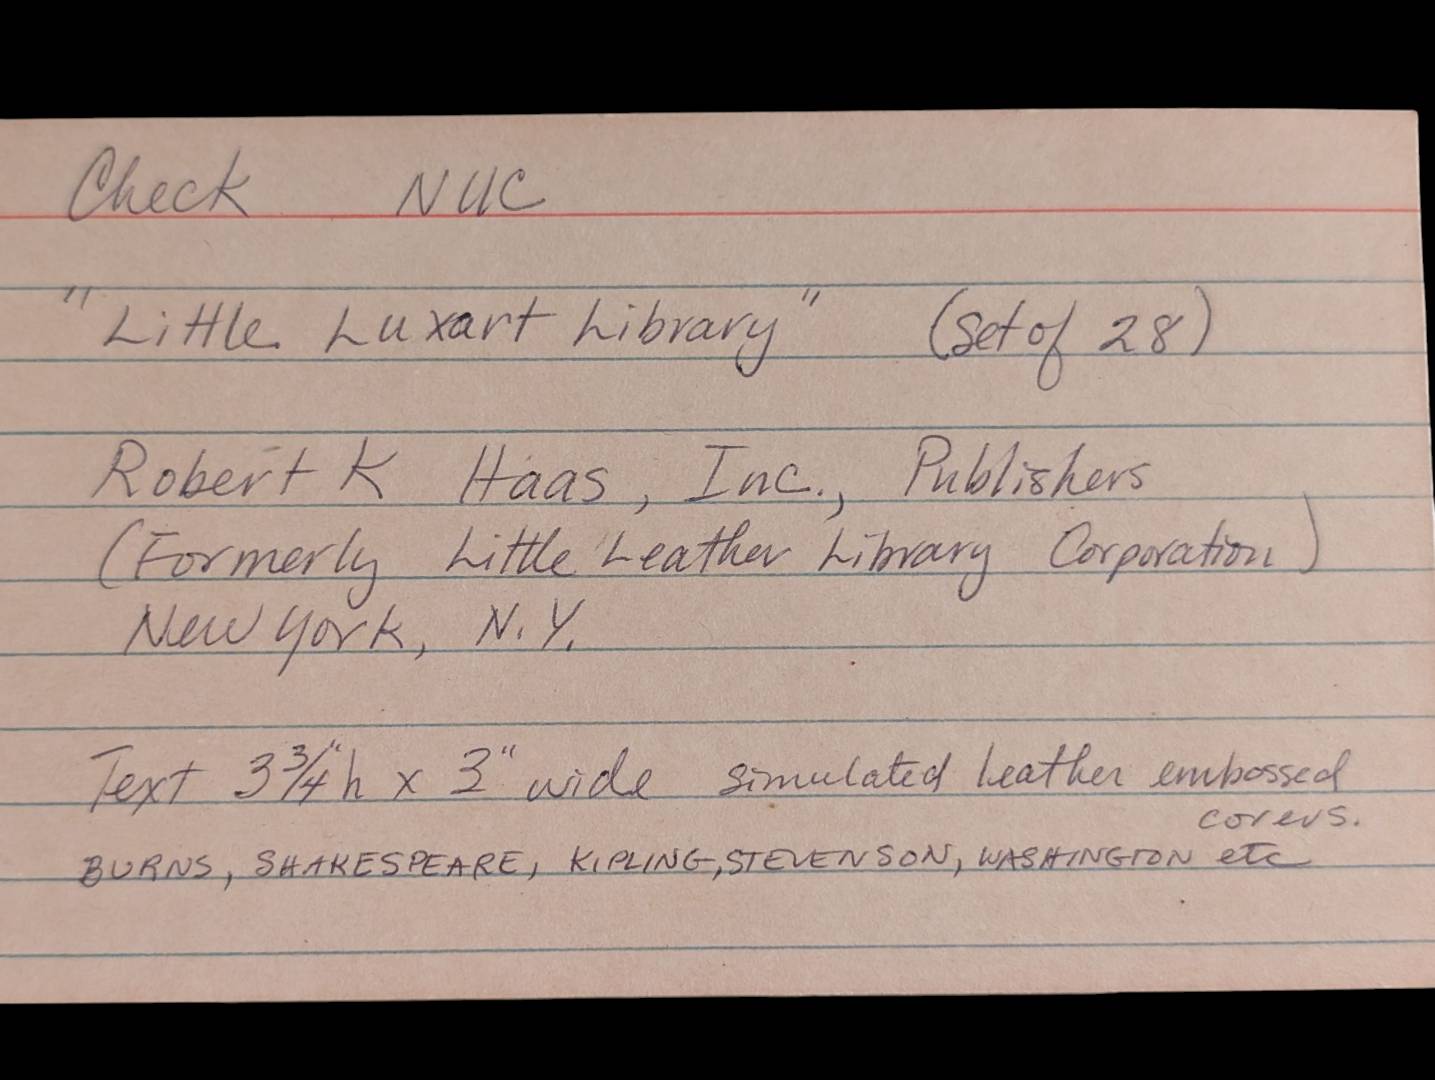 Check NUC
"Little Luxart Library" (set of 28)
Robert K Haas, Inc., Publishers
(Formerly Little Leather Library Corporation)
New York, N.Y.
Text 3 3/4" h x 3" wide simulated leather embossed
covers.
BURNS, SHAKESPEARE, KIPLING, STEVENSON, WASHINGTON etc